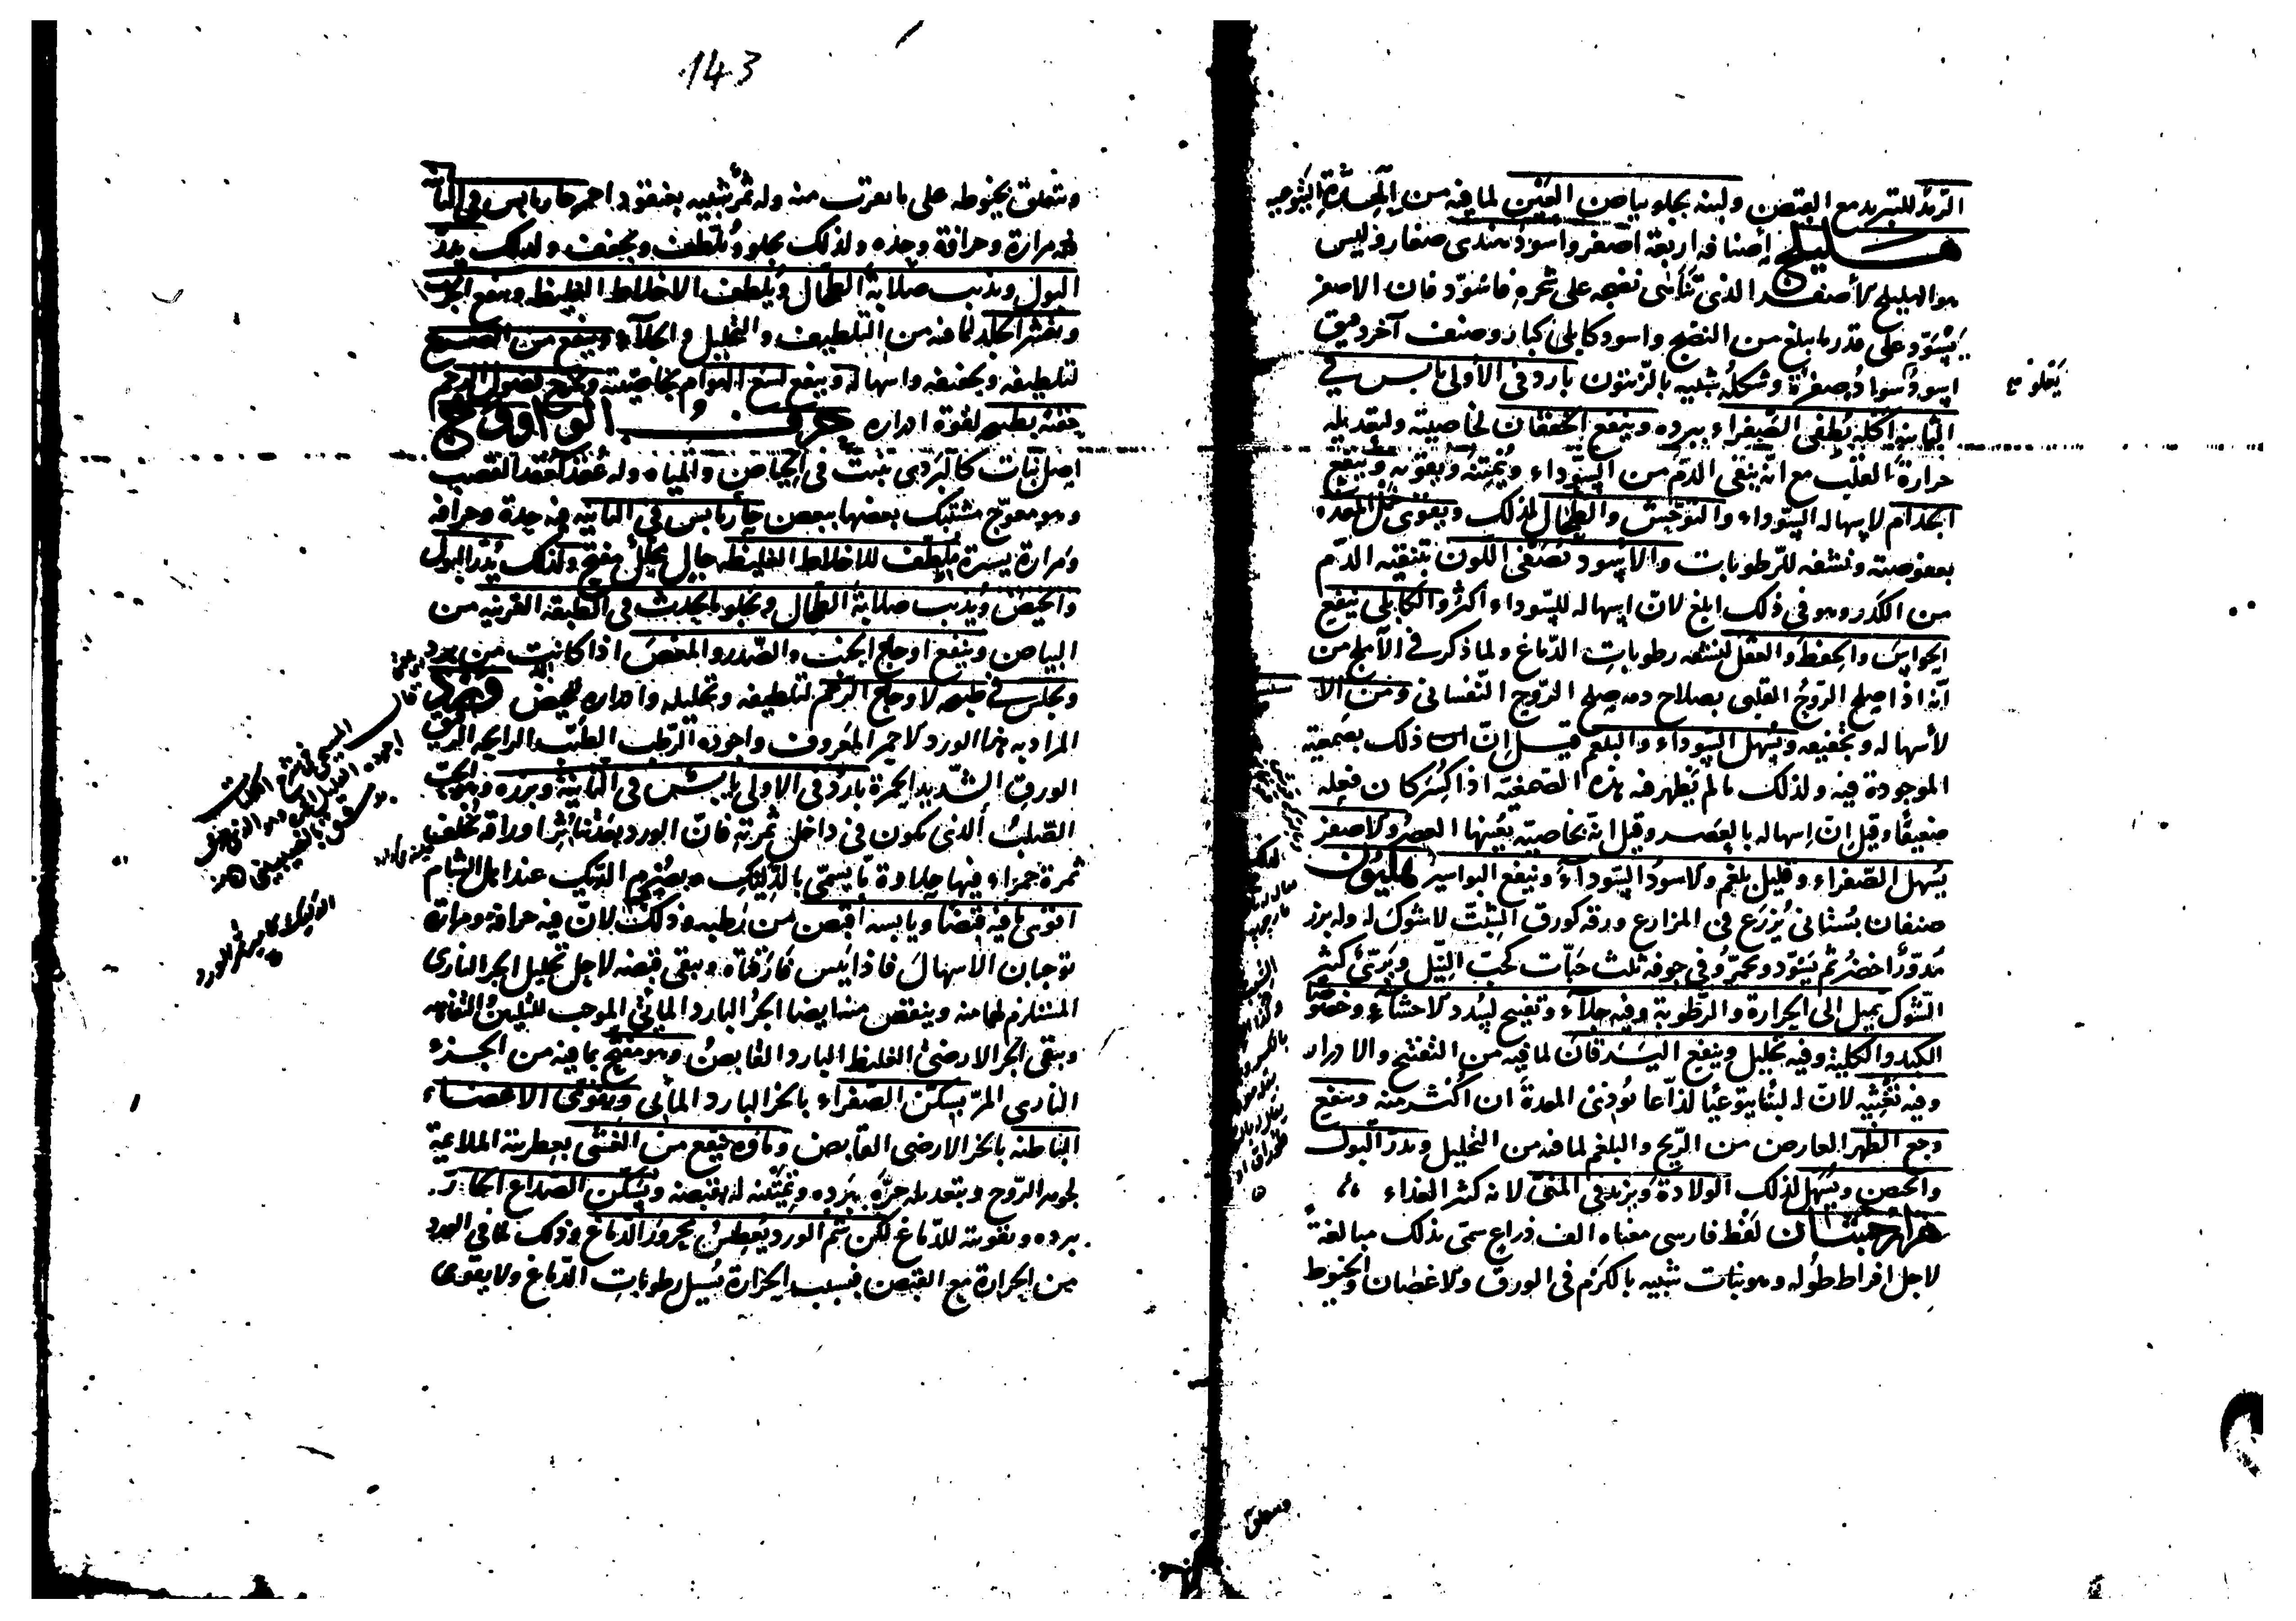 الترمذ للتبريد مع القبض ولبنه يجلو بياض العين لما فيه من الحدة الیتوعیه
هليلج أصنافه اربعة اصفر واسود هندى صغار وليس
هو الهليلج الأصفر الذى تناهى نضجه على شجره فاسود فان الاصفر
يسود على قدر ما يبلغ من النضج واسود كابلى كبار وصنف آخر دقيق
اسود سوادُ صفرة وشكله شبيه بالزيتون بارد فى الأولى يابس فى
الثانية أكله يطفى الصفراء ببرده وينفع الخفقان لخاصيته ولتعديله
حرارة القلب مع انه ينقى الدم من السوداء ويمتنه ويقويه وينفع
الجذام لاسهاله السوداء والتوحش والطحال لذلك ويقوى خمل المعده
بعفوصته ونشفه للرطوبات والأسود يصفى اللون بتنقيته الدم
من الكدر وهو فى ذلك ابلغ لان اسهاله للسوداء أكثر والكابلى ينفع
الحواس والحفظ والعقل لنشفه رطوبات الدماغ ولما ذكر فى الآملج من
انه اذا صلح الروح القلبى بصلاح دمه صلح الروح النفسانى ومن الا
لأسهاله وتجفيفه ويسهل السوداء والبلغم قيل ان ذلك بصمغيته
الموجودة فيه ولذلك ما لم يظهر فيه هذه الصمغية اذا كسر كان فعله
ضعيفا وقيل ان اسهاله بالعصر وقيل انه بخاصيته يعينها العصر والاصفر
يسهل الصفراء وقليل بلغم والاسود السوداء وينفع البواسير هليون
صنفان بستانى يزرع فى المزارع ورقه كورق الشبت لا شوك له وله بزر
مدور اخضر ثم يسود ويحمر وفى جوفه ثلث حبات كحب النيل وبرى كثير
الشوك يميل الى الحرارة والرطوبة وفيه جلاء وتفتيح لسدد الاحشاء وخصوصا
الكبد والكلية وفيه تحليل وينفع اليرقان لما فيه من التفتيح والادرار
وفيه تغثيه لان له لبنا يتوعيا لذاعا يوذى المعدة ان اكثر منه وينفع
وجع الظهر العارض من الريح والبلغم لما فيه من التحليل ويدر البول
والحيض ويسهل لذلك الولادة ويزيد فى المنى لانه كثير الغذاء
هزارجشان لفظ فارسى معناه الف ذراع سمى بذلك مبالغة
لاجل افراط طوله وهو نبات شبيه بالكرم فى الورق والاغصان والخيوط
143
ويتعلق بخيوطه على ما يقرب منه وله ثمر شبيه بعنقود احمر حار يابس فى الثانيه
فيه مرارة وحرافة وحده ولذلك يجلو ويلطف ويجفف ولذلك يدر
البول ويذيب صلابة الطحال ويلطف الاخلاط الغليظه وينفع الجرب
وتقشر الجلد لما فيه من التلطيف والتحليل والجلاء وينفع من الصرع
لتلطيفه وتجفيفه واسهاله وينفع لسع الهوام بخاصيته ويخرج فضول الرحم
حقنه بطبيخه لقوة ادراره حرف الواو وج
اصل نبات كالبردى تنبت فى الحياض والمياه وله عقد كعقد القصب
وهو معوج مشتبك بعضها ببعض حار يابس فى الثانيه فيه حدة وحرافه
ومرارة يسيرة ملطف للاخلاط الغليظه جال محلل مفتح ولذلك يدر البول
والحيض ويذيب صلابة الطحال ويجلو ما يحدث فى الطبقة القرنيه من
البياض وينفع اوجاع الجنب والصدر والمغص اذا كانت من برد
ويجلس فى طبيخه لاوجاع الرحم لتلطيفه وتحليله وادراره للحيض ورد
المراد به هنا الورد الاحمر المعروف واجوده الرطب الطيب الرايحه الدقيق
الورق الشديد الحمرة بارد فى الاولى يابس فى الثانية وبزره وهو الحب
الصلب الذى يكون فى داخل ثمرته فان الورد بعد تناثر اوراقه تخلف
ثمرة حمراء فيها حلاوة ما يسمى بالدليك وبصرم الديك عند اهل الشام
اقوى ما فيه قبضا ويابسه اقبض من رطبه وذلك لان فيه حرافة ومرارة
توجبان الاسهال فاذا يبس فارقتاه ويبقى قبضه لاجل تحليل الجزء النارى
المستلزم لهما منه وينقص منه ايضا الجزء البارد المائى الموجب للتليين
ويبقى الجزء الارضى الغليظ البارد القابض وهو مفتح بما فيه من الجزء
النارى المر يسكن الصفراء بالجزء البارد المائى ويقوى الاعضاء
الباطنة بالجزء الارضى القابض وماؤه ينفع من الغشى بعطريته الملاءمة
لجوهر الروح وبتعديله حره ببرده وتمتينه له بقبضه ويسكن الصداع الحار
ببرده وتقويته للدماغ لكن شم الورد يعطس محرور الدماغ وذلك لما فى الورد
من الحرارة مع القبض فبسبب الحرارة تسيل رطوبات الدماغ ولا يقوى